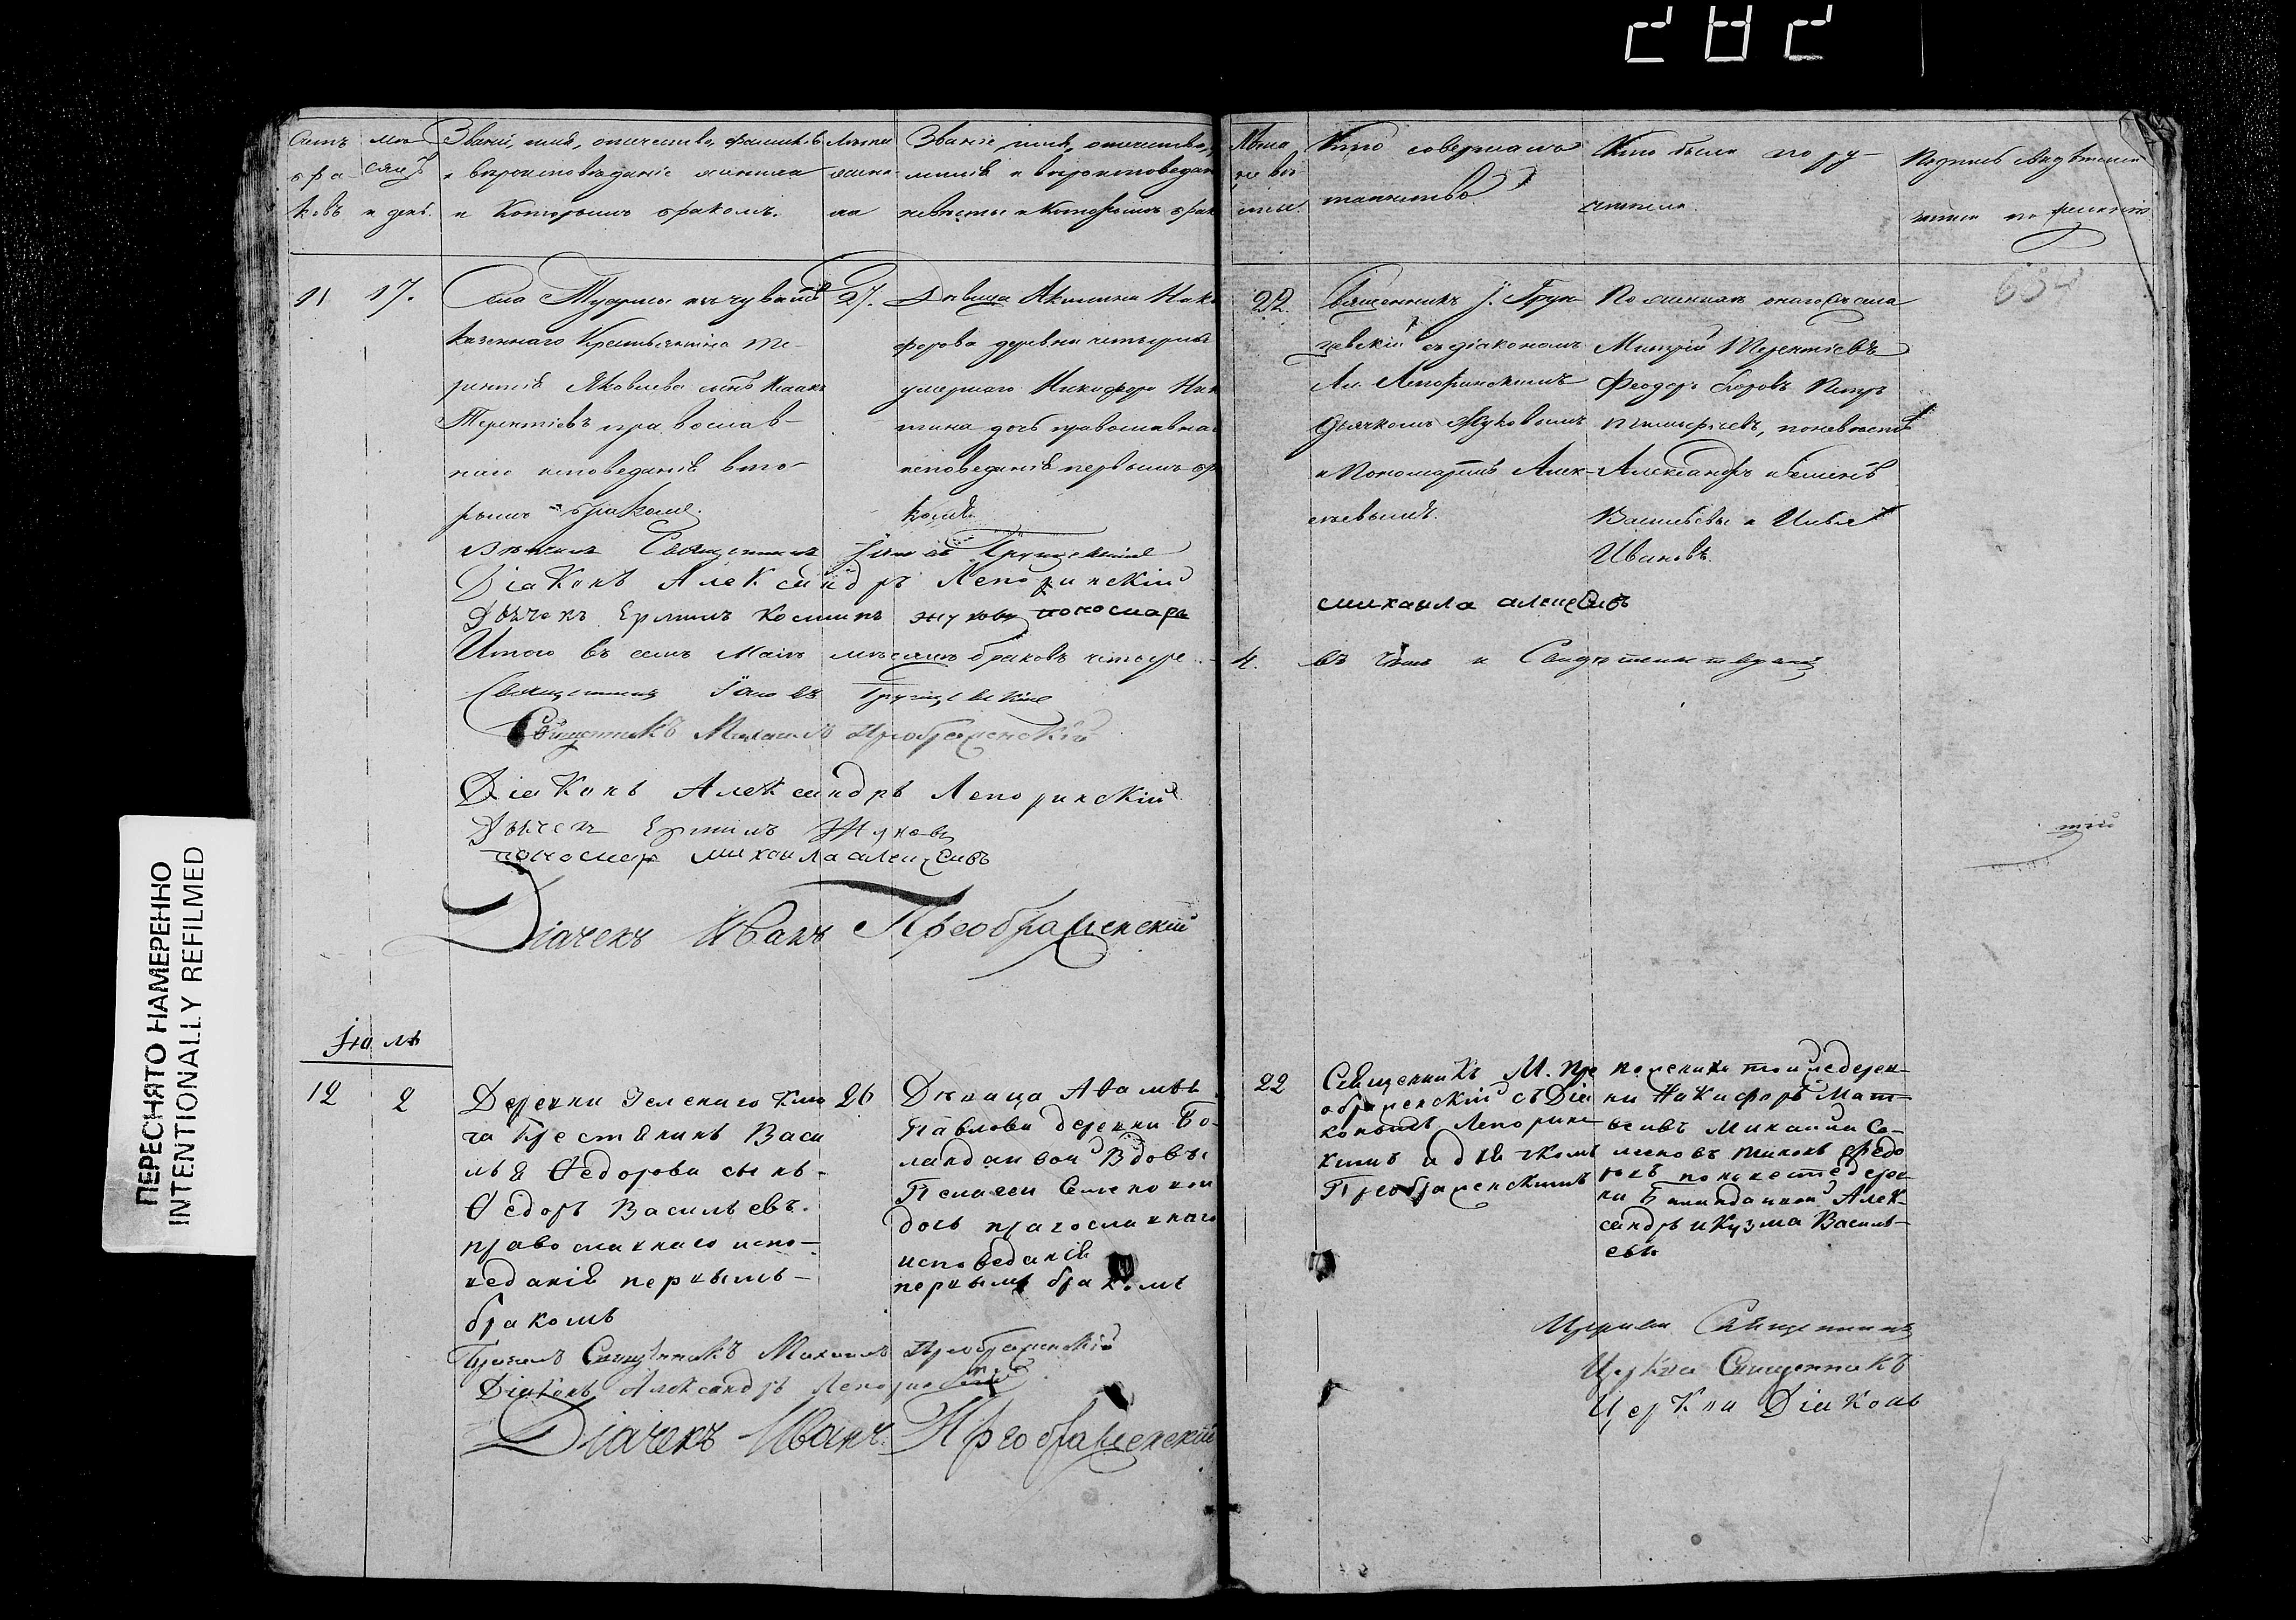 282
Счетъ бра-ковъ
мѣ-сяцъ и день.
Званіе, имя, отечество, фамилія
и вѣроисповѣданіе жениха
и которымъ бракомъ.
Лѣта жени-ха
Званіе имя, отечество,
милія и вѣроисповедан
невѣсты и которымъ брак
Лѣта не вѣ сты.
Кто совершалъ
таинство
Кто были по ру-
чители.
Подпись свидѣтелей
записи по желанію
634
11
17.
Села
казеннаго крестьянина Те-
рентія Яковлева сынъ Исаакъ
Терентіевъ православ-
наго исповеданія вто-
рымъ бракомъ.
27.
Дѣвица Акилина Ники
форова деревни
умершаго Никифора Ник
тина дочь православнаг
исповеданія первымъ бра
комъ.
22.
Священникъ І. Грун-
цевскій съ діакономъ
Ал. Лепоринскимъ
дьячкомъ Жуковымъ
и Пономаремъ Алек-
сѣевымъ.
По женихѣ онаго села
Митрій Терентіевъ
Феодоръ Петръ
поневѣстѣ
Александръ и Семенъ
Васильевы и Илья
Ивановъ.
Вѣнчалъ Священникъ Іаковъ
Діаконъ Александръ Лепоринскій
Дьячекъ Ермилъ Косминъ Жуковъ пономарь
михаила алексѣивъ
Итого въ семъ Маіѣ мѣсяцѣ браковъ четыре
4.
въ чемъ и Свидѣтельствуемъ
Священникъ Іаковъ
Священникъ Михаилъ Преображенскій
Діаконъ Александръ Лепоринскій
Дьячекъ Ермилъ Жуковъ
пономар михаила алексѣивъ
Діячекъ Иванъ Преображенскій
тій
Іюль
12
2
Деревни Зеленаго Клю
ча Крестянинъ Васи
лья Ѳедорова сынъ-
Ѳедоръ Васильевъ.
православнаго испо-
веданія первымъ-
бракомъ
26
Дѣвица
Павлова деревни Бо-
ландаивой Вдовы
Пелагеи Семеновой
дочь православнаго
исповеданія
первымъ бракомъ
22
Священникъ М. Пре
ображенскій съ Діа
кономъ Лепорин
скимъ и дьячкомъ
Преображенскимъ
поженихѣ тойжедерев-
ни Никифоръ Мат-
вѣивъ Михаила Се-
меновъ Тихонъ Федо
ровъ поневестѣ дерев-
ни Алек-
сандръ и Кузма Василь-
евы
Вѣнчалъ Священникъ Михаилъ Преображенскій
Діаконъ Александръ Лепоринскій
Діячекъ Иванъ Преображенскій
Церкви Священникъ
Церкви Священникъ
Церкви Діаконъ
ПЕРЕСНЯТО НАМЕРЕННО
INTENTIONALLY REFILMED